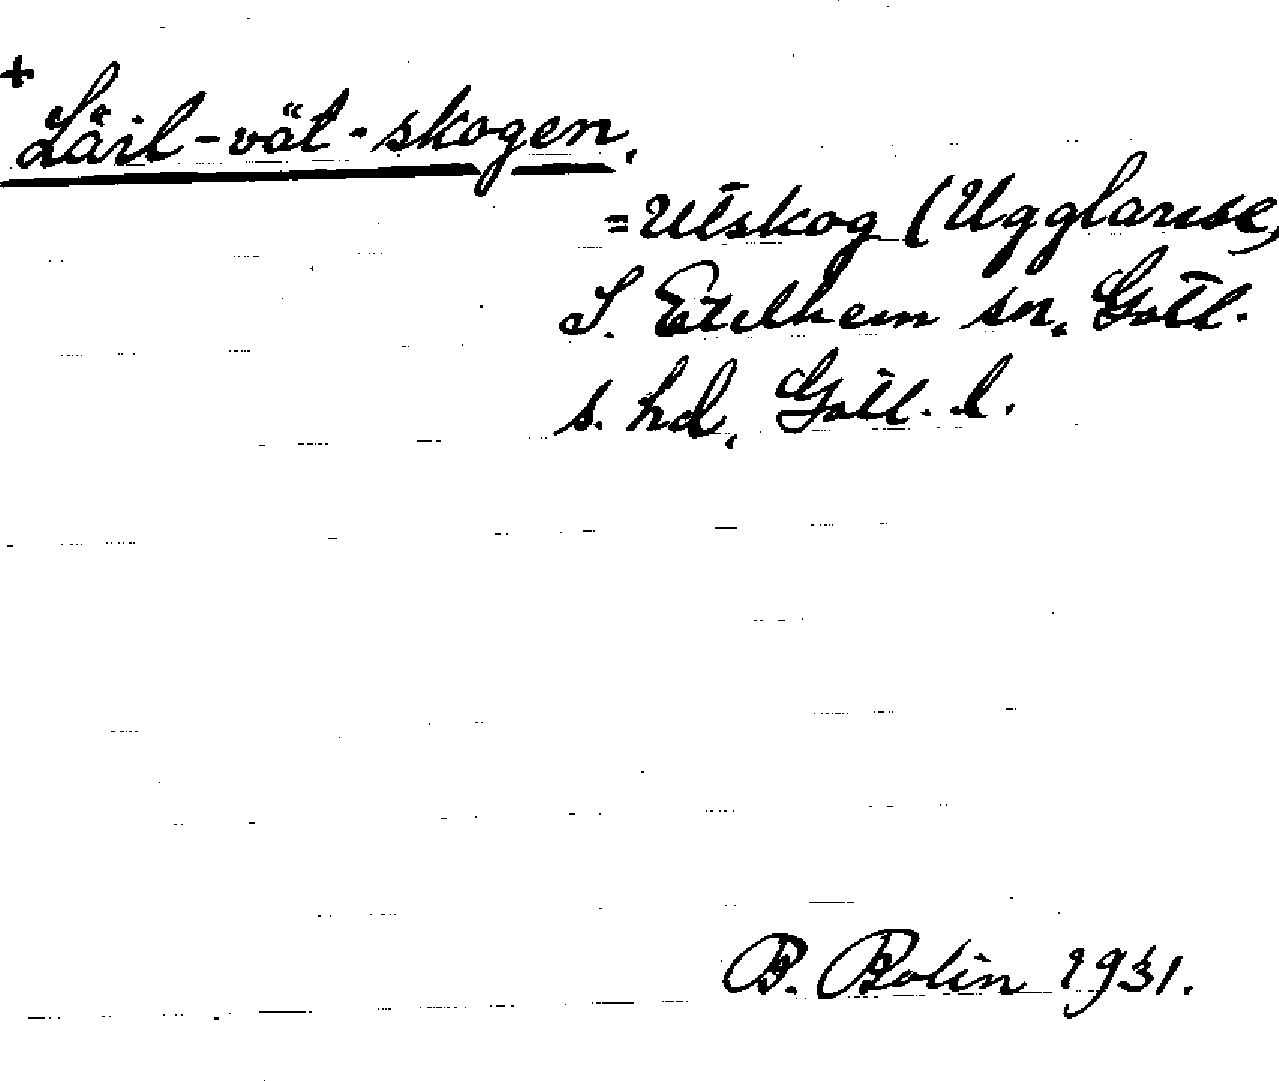 +
Läil-vät-skogen.
= Utskog (Ugglarse,
S. Etelhem sn. Gotl.
s. hd. Gotl. l.
B. Bolin 1931.